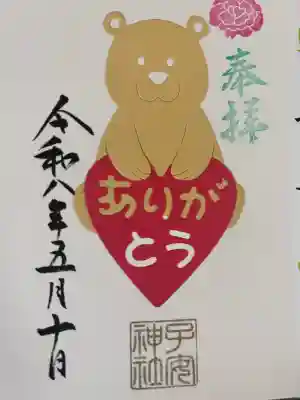 奉拝
ありが
とう
令和八年五月十日
子安
神社